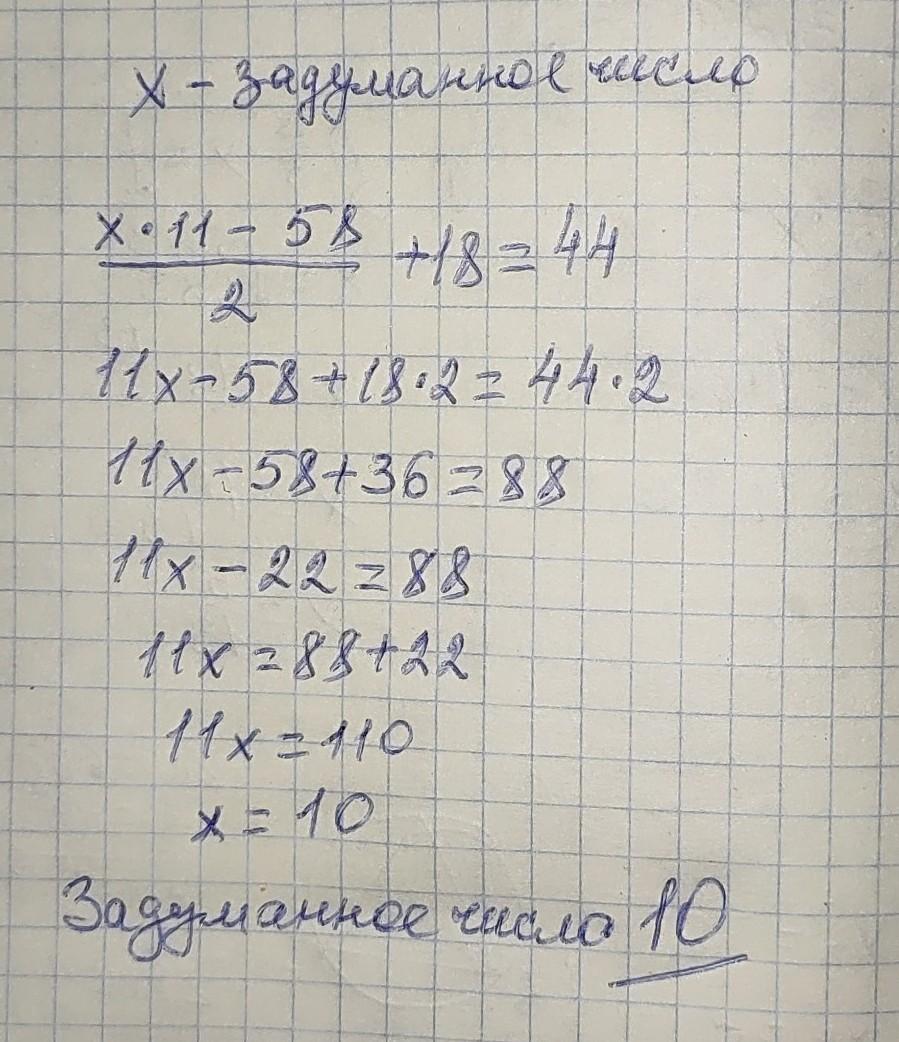 x - задуманное число
x·11 - 58
2
+18 = 44
11x - 58 + 18·2 = 44·2
11x - 58 + 36 = 88
11x - 22 = 88
11x = 88 + 22
11x = 110
x = 10
Задуманное число 10